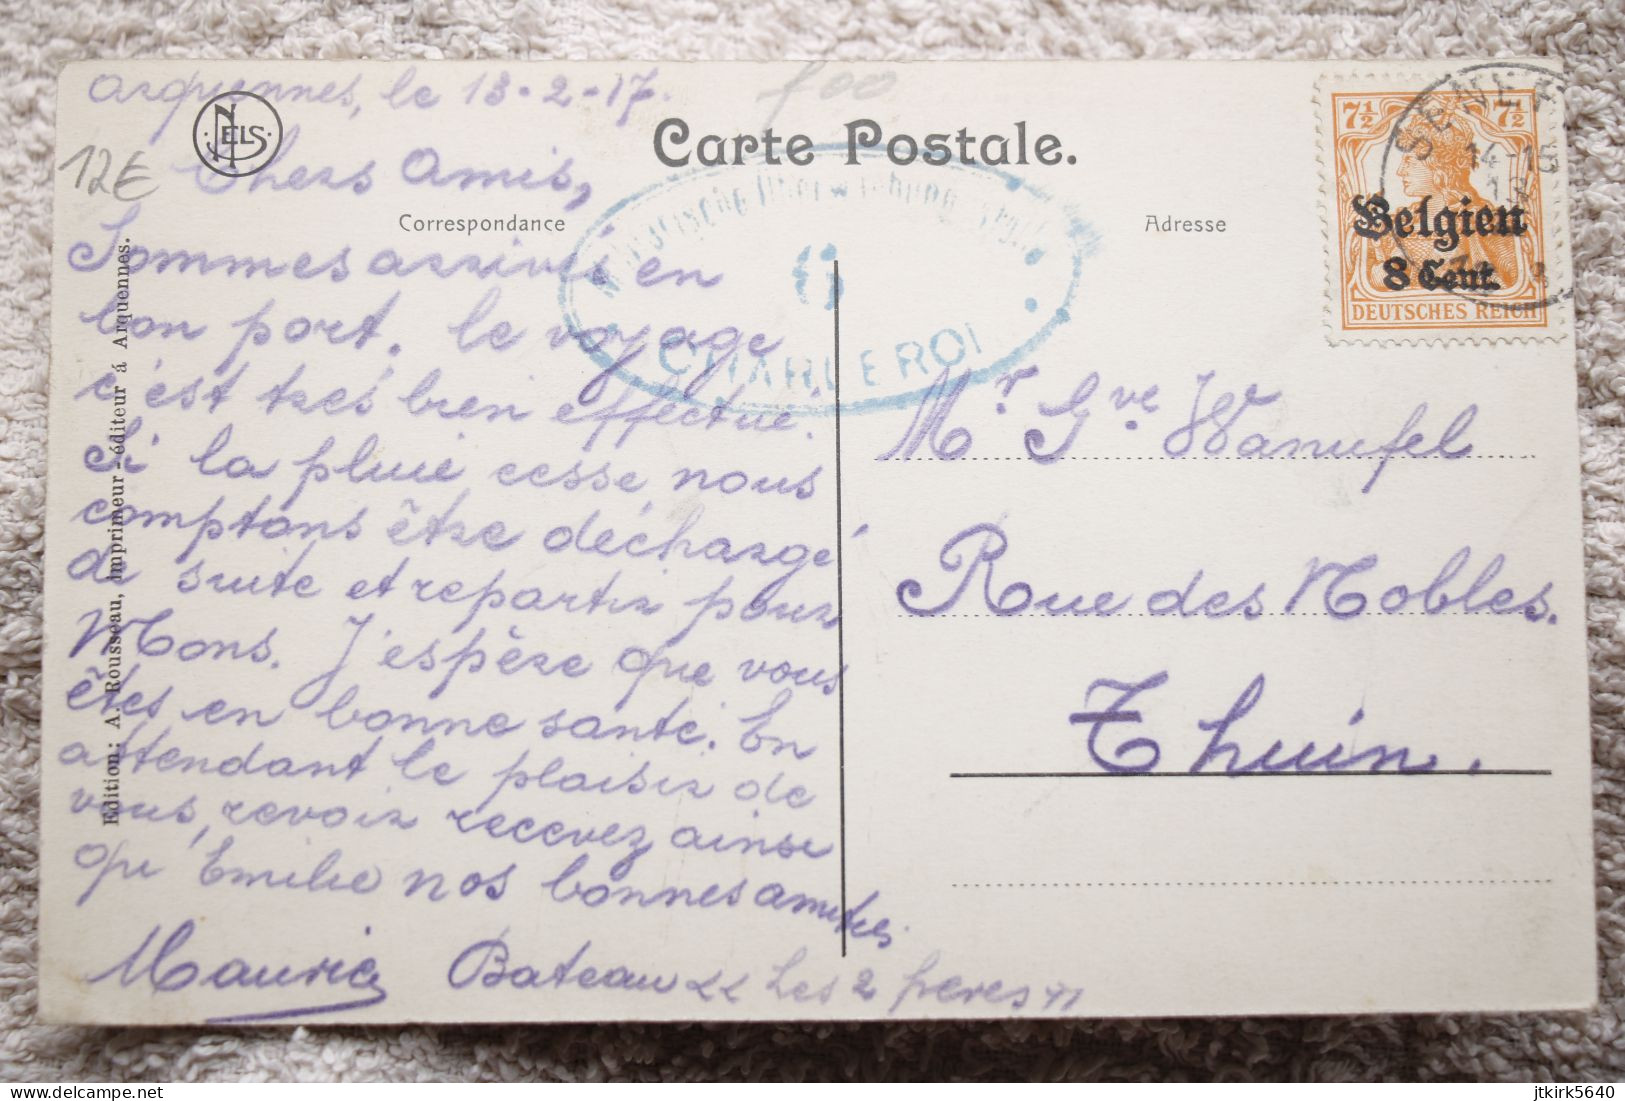 Arquennes, le 13-2-17.
foo
NELS
12€
Carte Postale.
Chers Amis,
Correspondance
Adresse
Sommes arrivés en
bon port. le voyage
c'est très bien effectué.
Si la pluie cesse nous
comptons être déchargé
de suite et repartir pour
Mons. J'espère que vous
êtes en bonne santé. En
attendant le plaisir de
vous revoir recevez ainsi
qu'Emilie nos bonnes amitiés.
Maurice
Bateau << Les 2 freres >>
Edition: A. Rousseau, imprimeur-éditeur á Arquennes.
Militärische Überwachungsstelle
6
CHARLEROI
7½ 7½
Belgien
8 Cent.
DEUTSCHES REICH
SENEFFE
Mr Gve Wanufel
Rue des Nobles.
Thuin.
delcampe.net
jtkirk5640